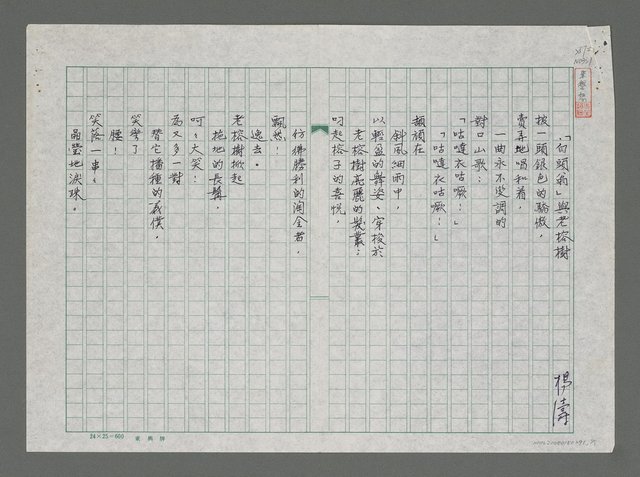 「白頭翁」與老榕樹
楊濤
披一頭銀色的驕傲，
賣弄地唱和着，
一曲永不變調的
對口山歌：
「咕噠衣咕噘！」
「咕噠衣咕噘！」
頡頏在
斜風細雨中，
以輕盈的舞姿、穿梭於
老榕樹亮麗的髮叢；
叼起榕子的喜悅，
彷彿勝利的淘金者，
飄然！
逸去。
老榕樹掀起
拖地的長鬚，
呵呵大笑：
為又多一對
替它播種的義僕，
笑彎了
腰！
笑落一串串
晶瑩地淚珠。
24×25=600